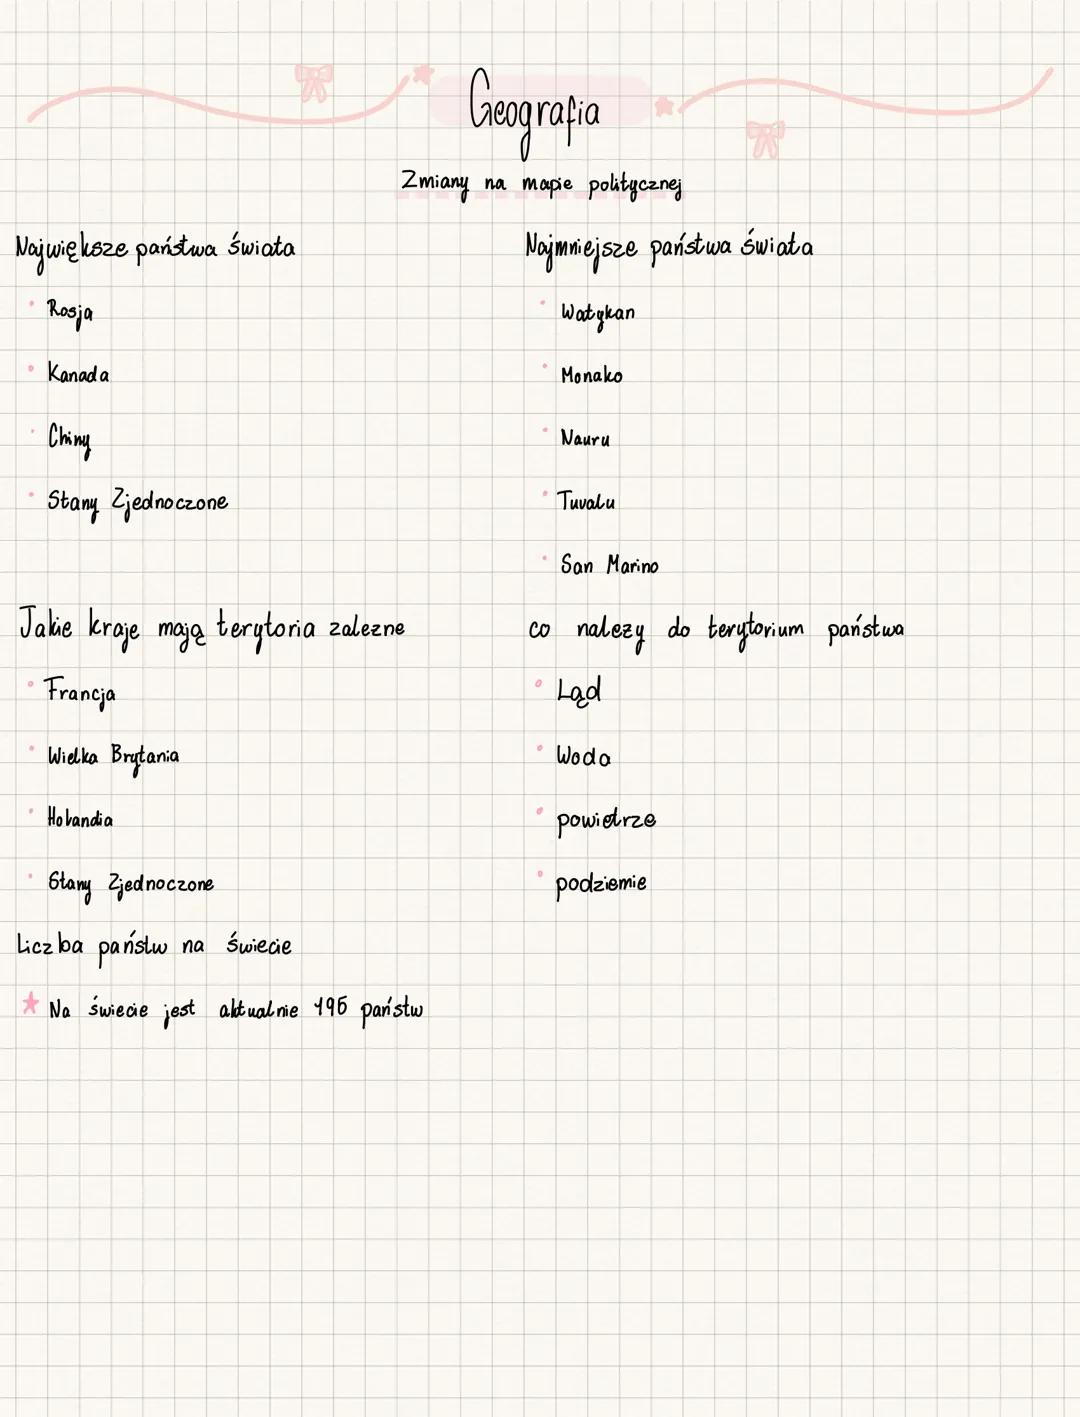 Geografia
Zmiany na mapie politycznej
Największe państwa świata
• Rosja
• Kanada
• Chiny
• Stany Zjednoczone
Najmniejsze państwa świata
• Watykan
• Monako
• Nauru
• Tuvalu
• San Marino
Jakie kraje mają terytoria zalezne
• Francja
• Wielka Brytania
• Holandia
• Stany Zjednoczone
co nalezy do terytorium państwa
• Ląd
• Woda
• powietrze
• podziemie
Liczba państw na świecie
★ Na świecie jest aktualnie 195 państw